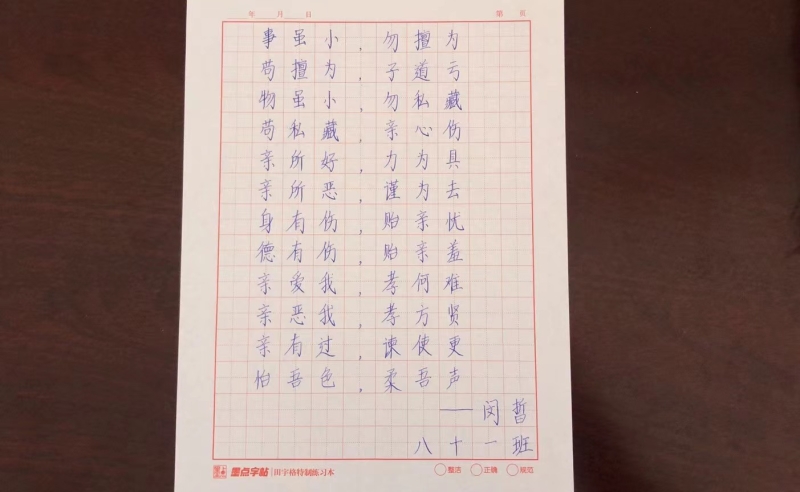 年 月 日 第 页
事虽小，勿擅为
苟擅为，子道亏
物虽小，勿私藏
苟私藏，亲心伤
亲所好，力为具
亲所恶，谨为去
身有伤，贻亲忧
德有伤，贻亲羞
亲爱我，孝何难
亲恶我，孝方贤
亲有过，谏使更
怡吾色，柔吾声
——闵哲
八十一班
墨点字帖 田字格特制练习本 整洁 正确 规范